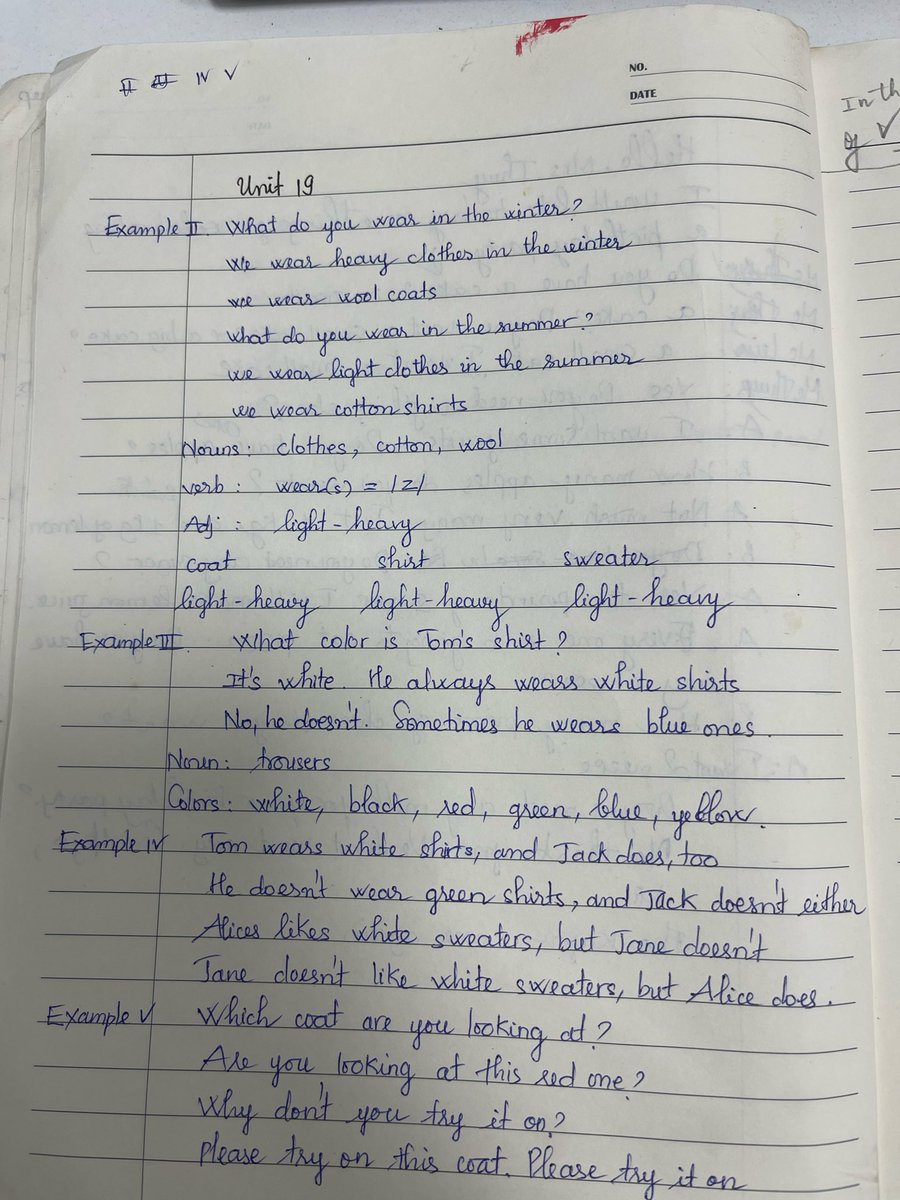 IV V
NO.
DATE
In th
Unit 19
Example II. What do you wear in the winter?
We wear heavy clothes in the winter
we wear wool coats
what do you wear in the summer?
we wear light clothes in the summer
we wear cotton shirts
Nouns: clothes, cotton, wool
verb: wear(s) = /z/
Adj: light-heavy
coat shirt sweater
light-heavy light-heavy light-heavy
Example III. What color is Tom's shirt?
It's white. He always wears white shirts
No, he doesn't. Sometimes he wears blue ones.
Noun: trousers
Colors: white, black, red, green, blue, yellow.
Example IV Tom wears white shirts, and Jack does, too
He doesn't wear green shirts, and Jack doesn't either
Alices likes white sweaters, but Jane doesn't
Jane doesn't like white sweaters, but Alice does.
Example V Which coat are you looking at?
Are you looking at this red one?
Why don't you try it on?
Please try on this coat. Please try it on